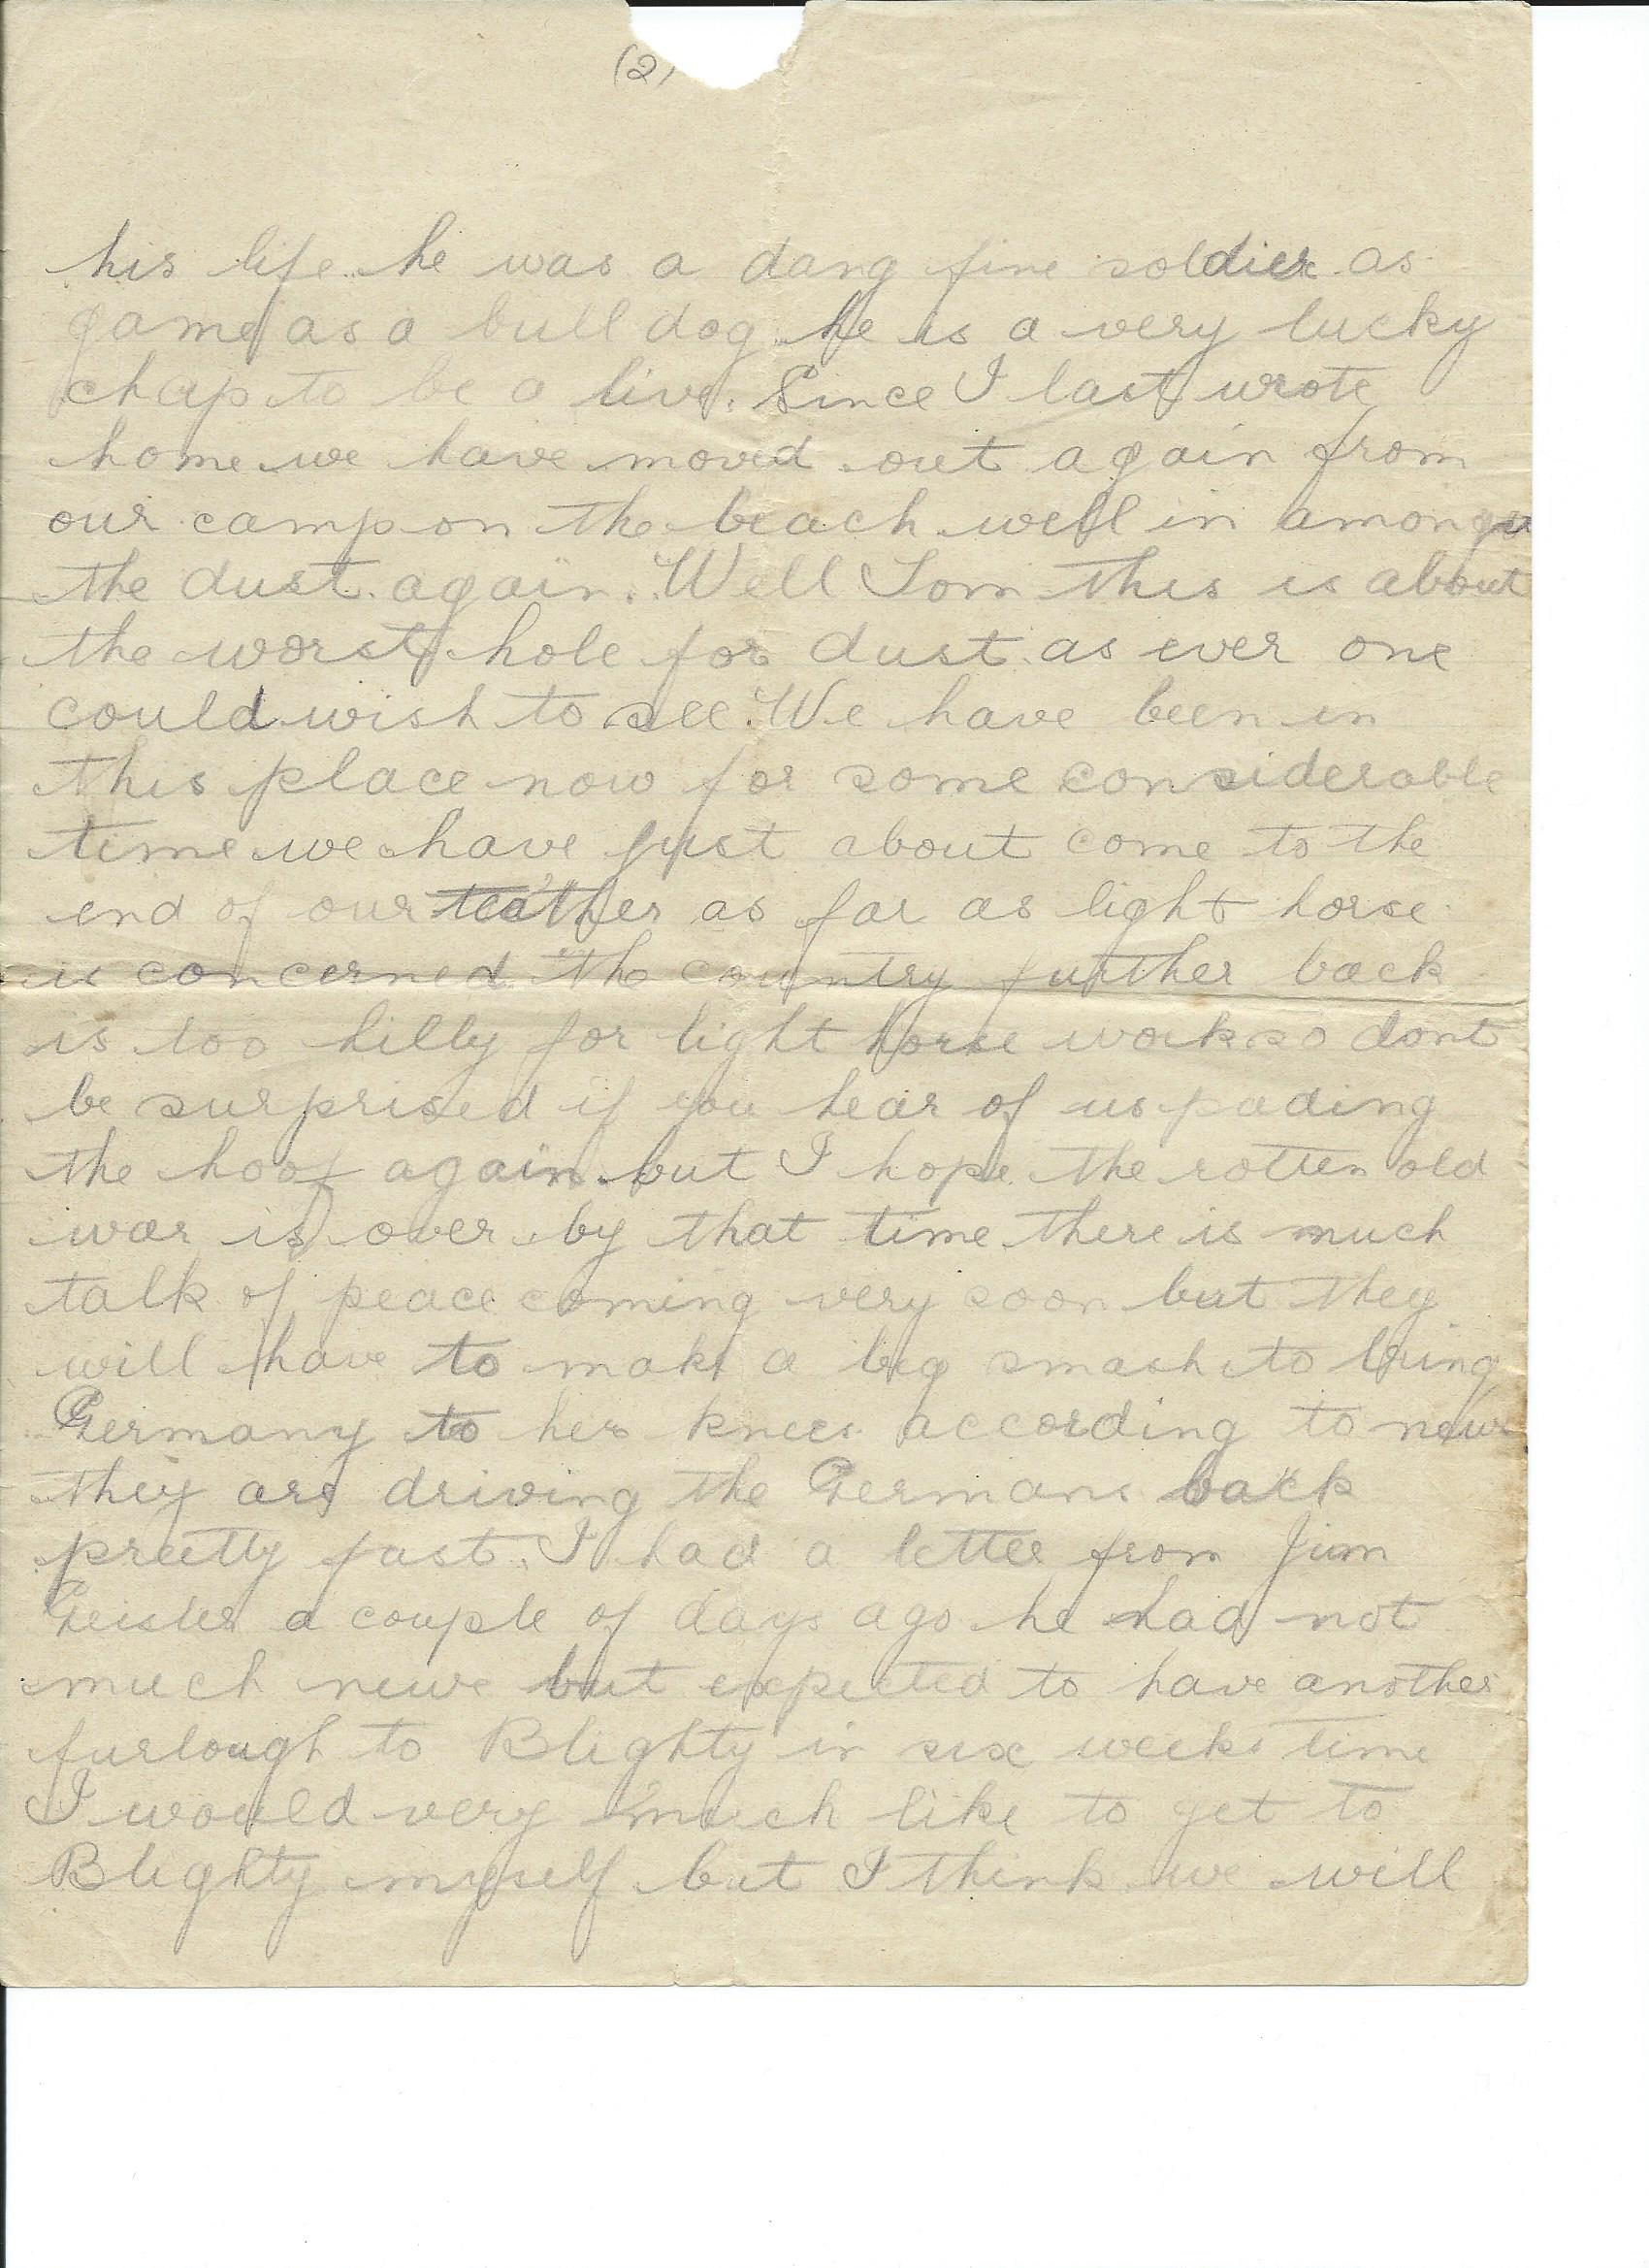 (2)
his life he was a dang fine soldier as
game as a bull dog he is a very lucky
chap to be a live. Since I last wrote
home we have moved out again from
our camp on the beach well in amongst
the dust again. Well Tom this is about
the worst hole for dust as ever one
could wish to see. We have been in
this place now for some considerable
time we have just about come to the
end of our teather as far as light horse
is concerned the country further back
is too hilly for light horse work so dont
be surprised if you hear of us pading
the hoof again. but I hope the rotten old
war is over by that time there is much
talk of peace coming very soon but they
will have to make a big smash to bring
Germany to her knees according to news
they are driving the Germans back
preetty fast. I had a letter from Jim
Geister a couple of days ago he had not
much news but expected to have another
furlough to Blighty in six weeks time
I would very much like to get to
Blighty myself but I think we will